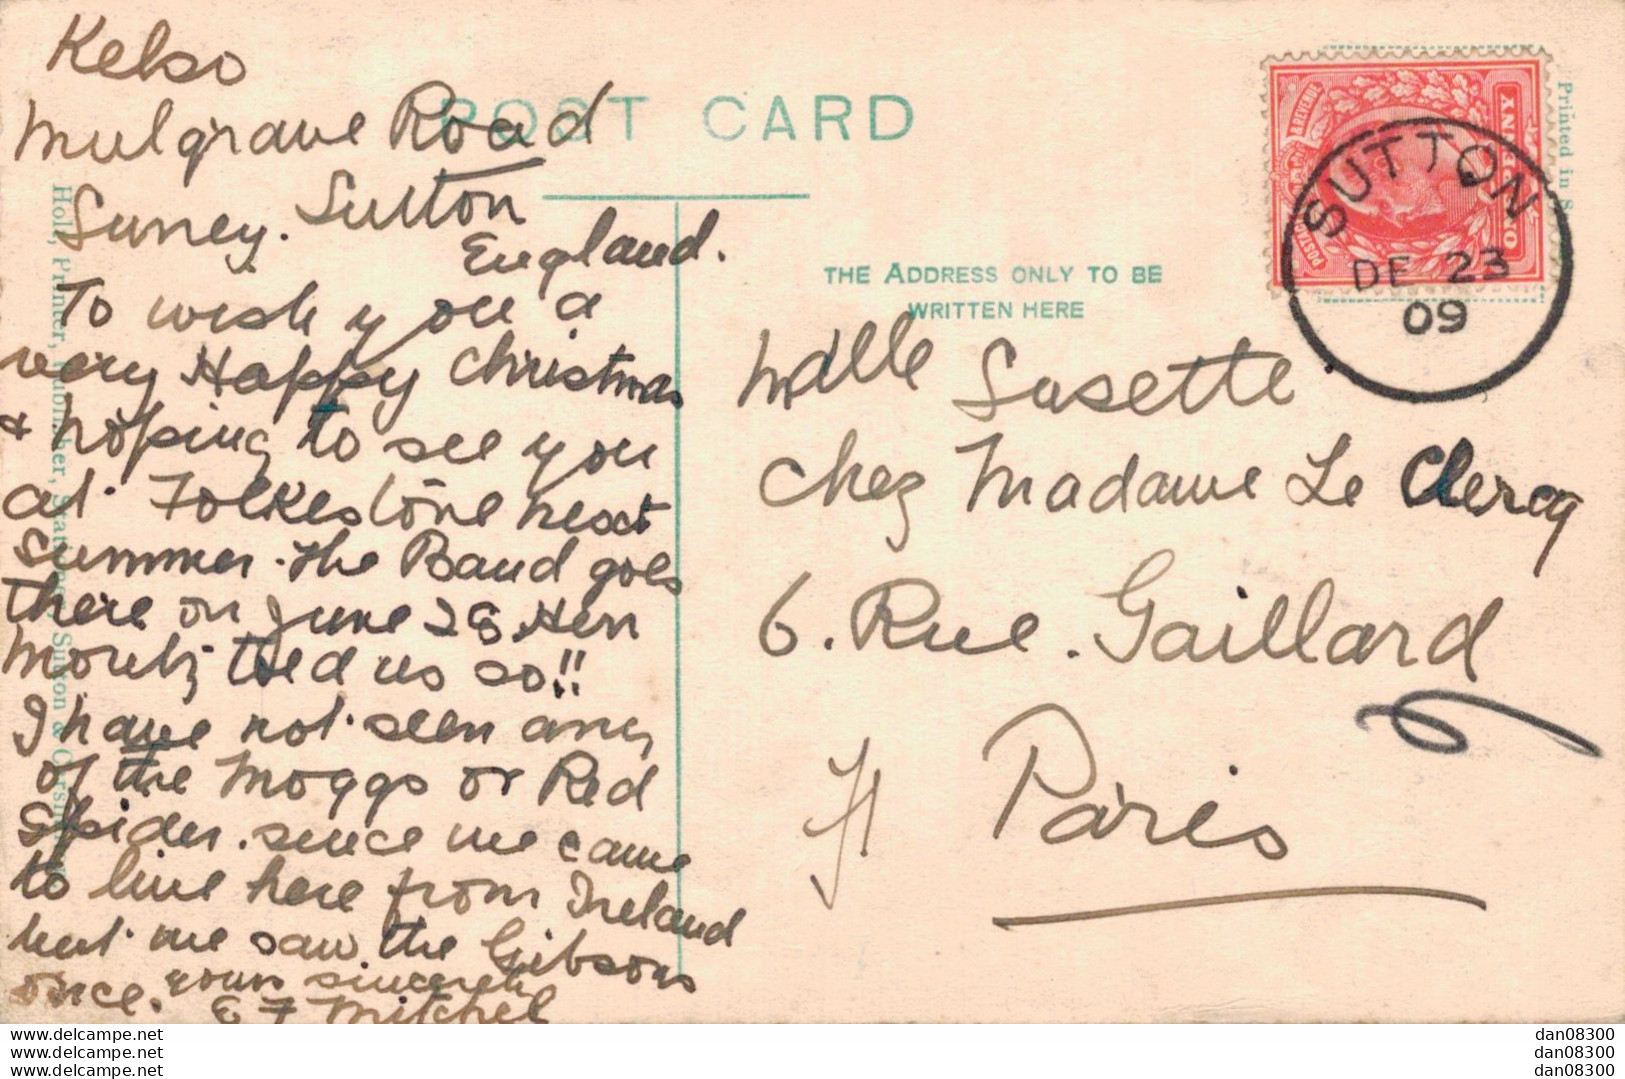 Kelso
Mulgrave Road
Surrey. Sutton
England.
To wish you a
very Happy Christmas
& hoping to see you
at Folkestone next
summer. The Band goes
there on June 28. Herr
Moritz told us so!!
I have not seen any
of the Moggs or Red
Spider. since we came
to live here from Ireland
but we saw the Gibsons
once. yours sincerely
E F Mitchel
POST CARD
THE ADDRESS ONLY TO BE
WRITTEN HERE
Mdlle Susette
Chez Madame Le Clercq
6. Rue. Gaillard
Paris
POSTAGE & REVENUE
ONE PENNY
SUTTON
DE 23
09
Printed in
Holt, Printer, Publisher, Stationer, Sutton &
www.delcampe.net
www.delcampe.net
www.delcampe.net
dan08300
dan08300
dan08300